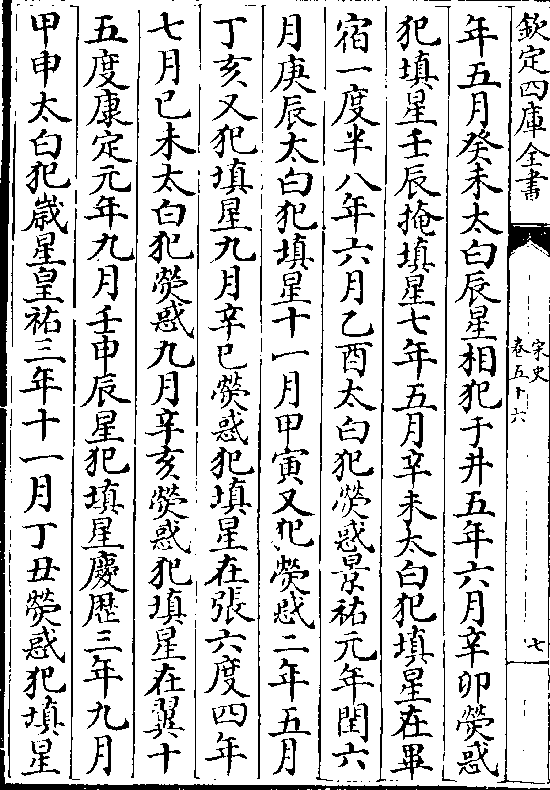 欽定四庫全書
宋史
卷五十六
七
年五月癸未太白辰星相犯于井五年六月辛卯熒惑
犯填星壬辰掩填星七年五月辛未太白犯填星在畢
宿一度半八年六月乙酉太白犯熒惑景祐元年閏六
月庚辰太白犯填星十一月甲寅又犯熒惑二年五月
丁亥又犯填星九月辛巳熒惑犯填星在張六度四年
七月已未太白犯熒惑九月辛亥熒惑犯填星在翼十
五度康定元年九月壬申辰星犯填星慶厯三年九月
甲申太白犯歲星皇祐三年十一月丁丑熒惑犯填星